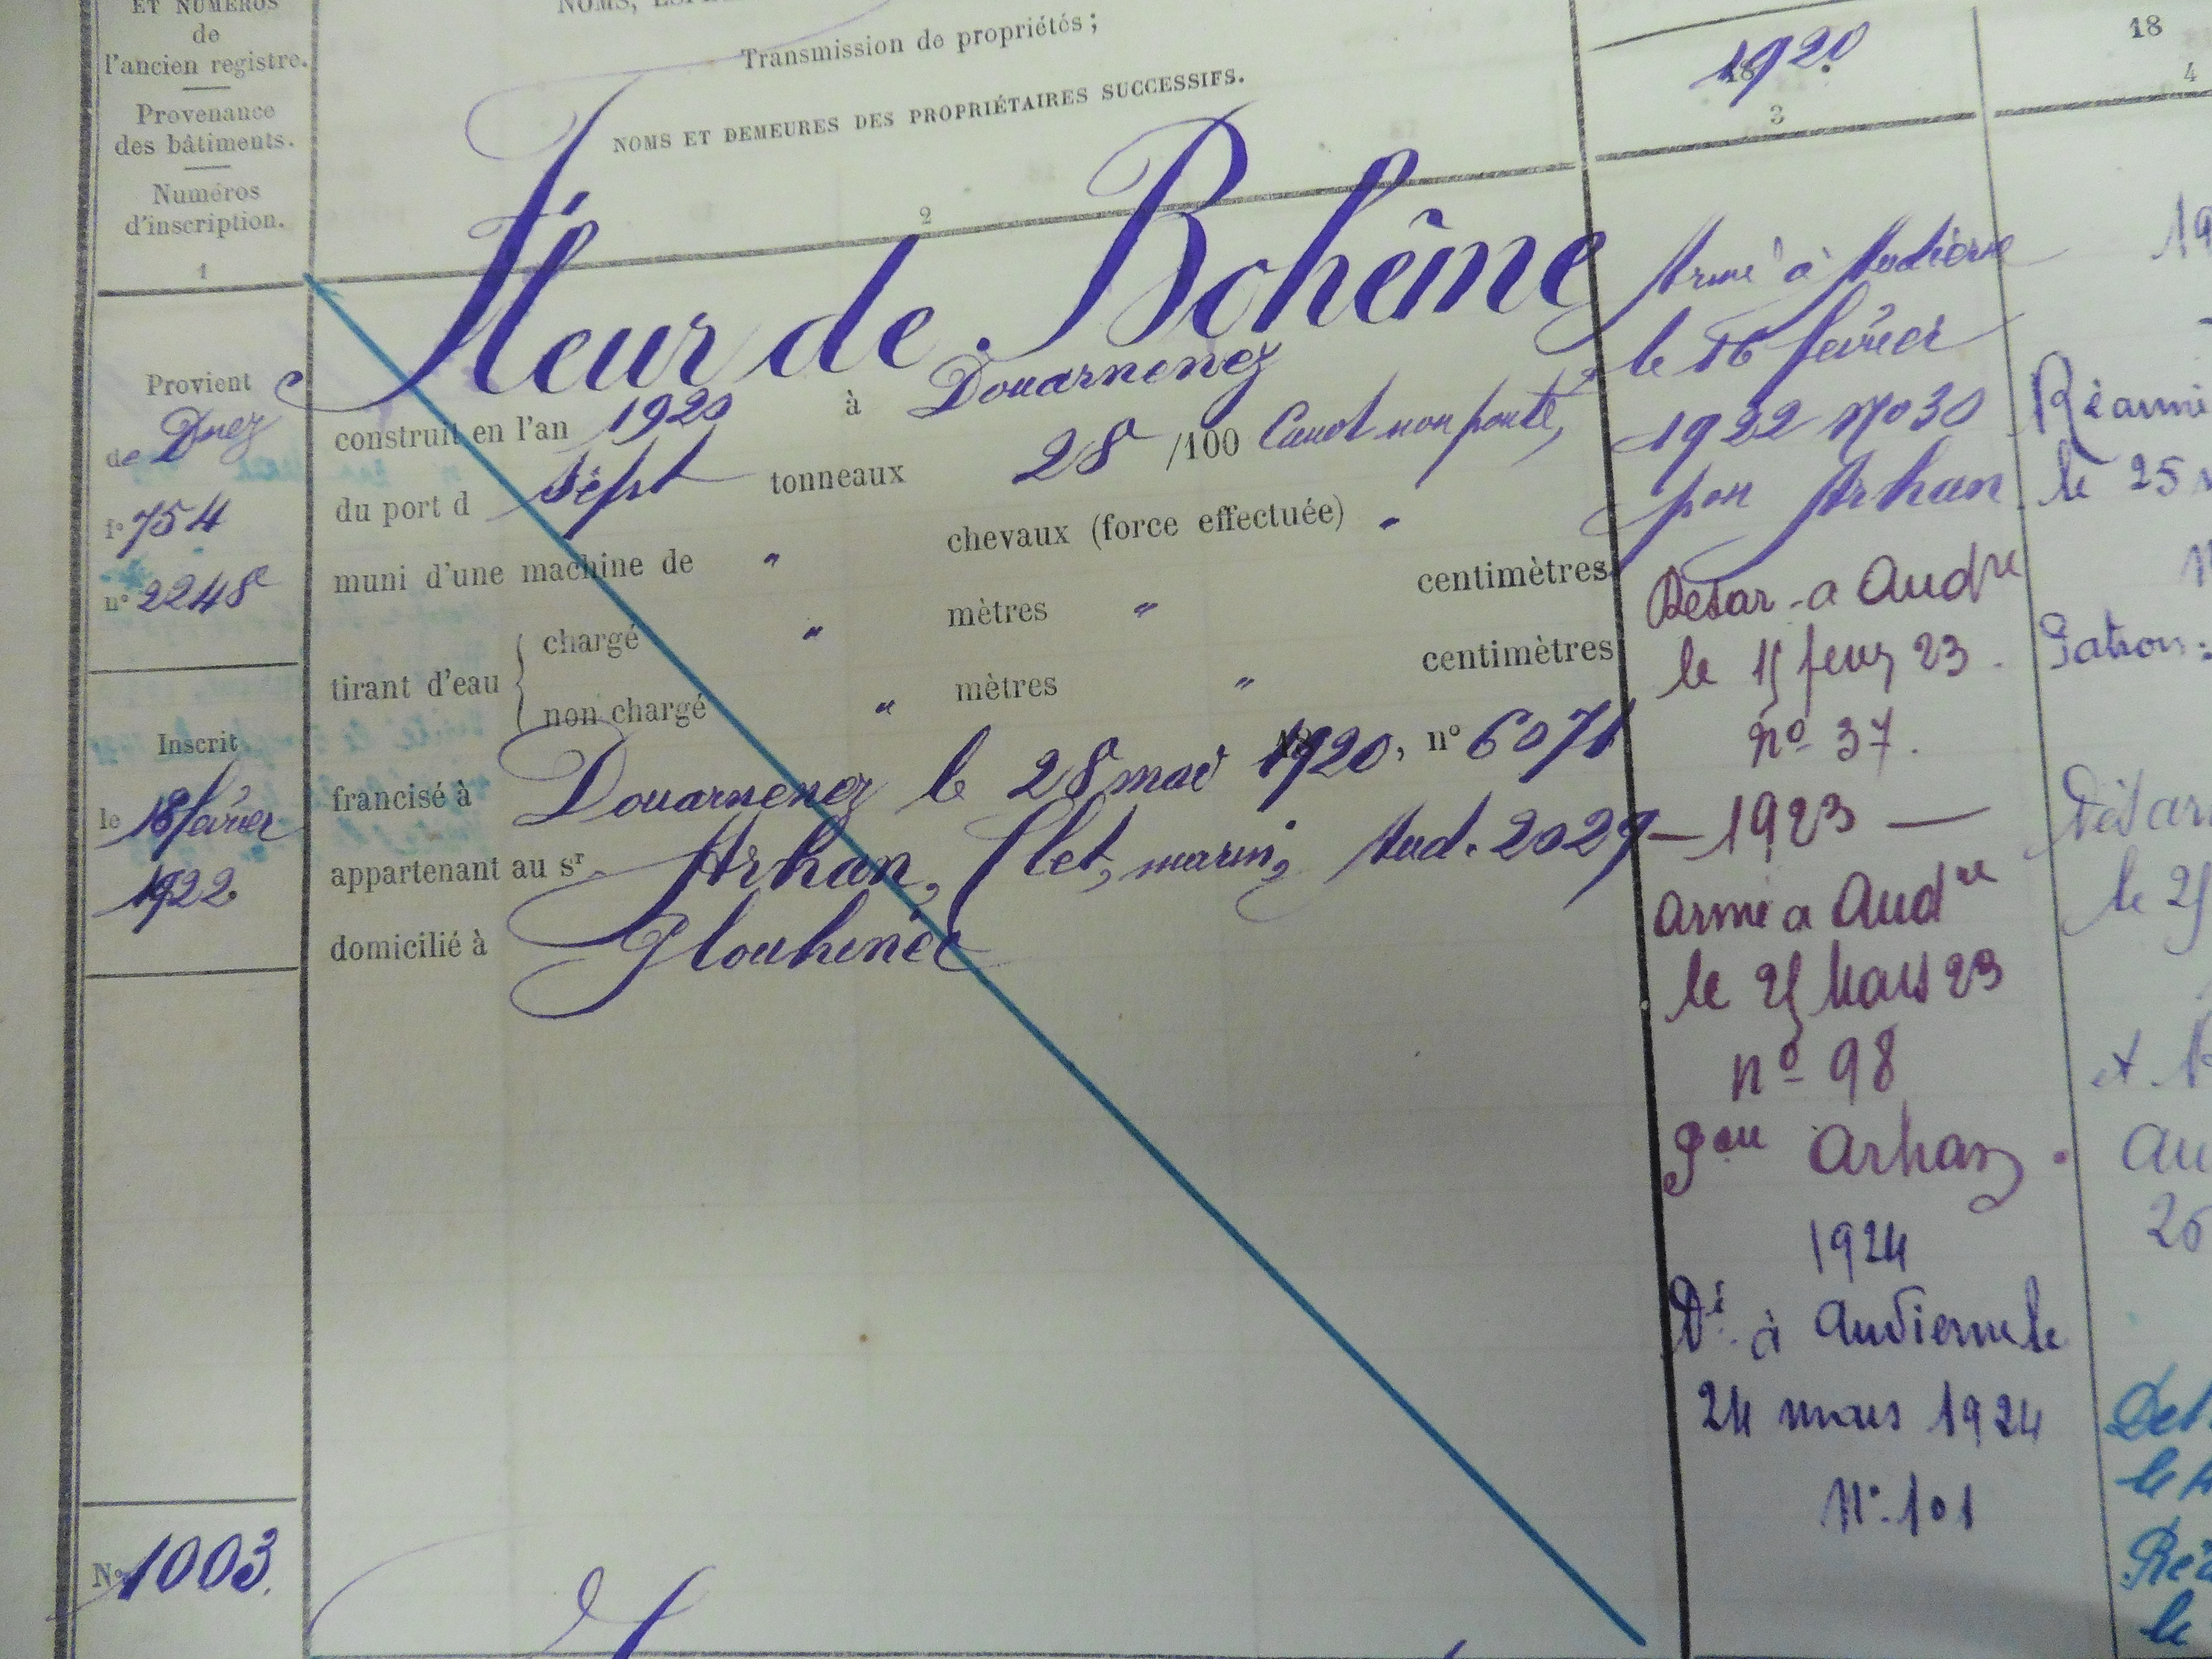 ET NUMÉROS
de
l'ancien registre.
Provenance
des bâtiments.
Numéros
d'inscription.
1
Transmission de propriétés;
NOMS ET DEMEURES DES PROPRIÉTAIRES SUCCESSIFS.
2
1920
3
18
4
Provient
de Dnez
f° 754
n° 2248
Inscrit
le 16 février
1922
N° 1003.
Fleur de Bohême
construit en l'an 1920 à Douarnenez
du port d sept tonneaux 28 /100 Canot non ponté,
muni d'une machine de " chevaux (force effectuée) "
tirant d'eau
chargé " mètres " centimètres
non chargé " mètres " centimètres
francisé à Douarnenez le 28 mai 1920, n° 6071
appartenant au sr Arhan, Clet, marin, Aud. 2029
domicilié à Plouhinec
Armé à Audierne
le 16 février
1922 No 30
pon Arhan
Desar. a Audne
le 15 fevr 23.
no 37.
— 1923 —
armé a Audne
le 25 Mars 23
no 98
Arhan
1924
Dé à Audierne le
24 mars 1924
N° 101
19
Réarmé
le 25
Patron:
Désar
le 25
et
Au
26
Des
le
Réa
le